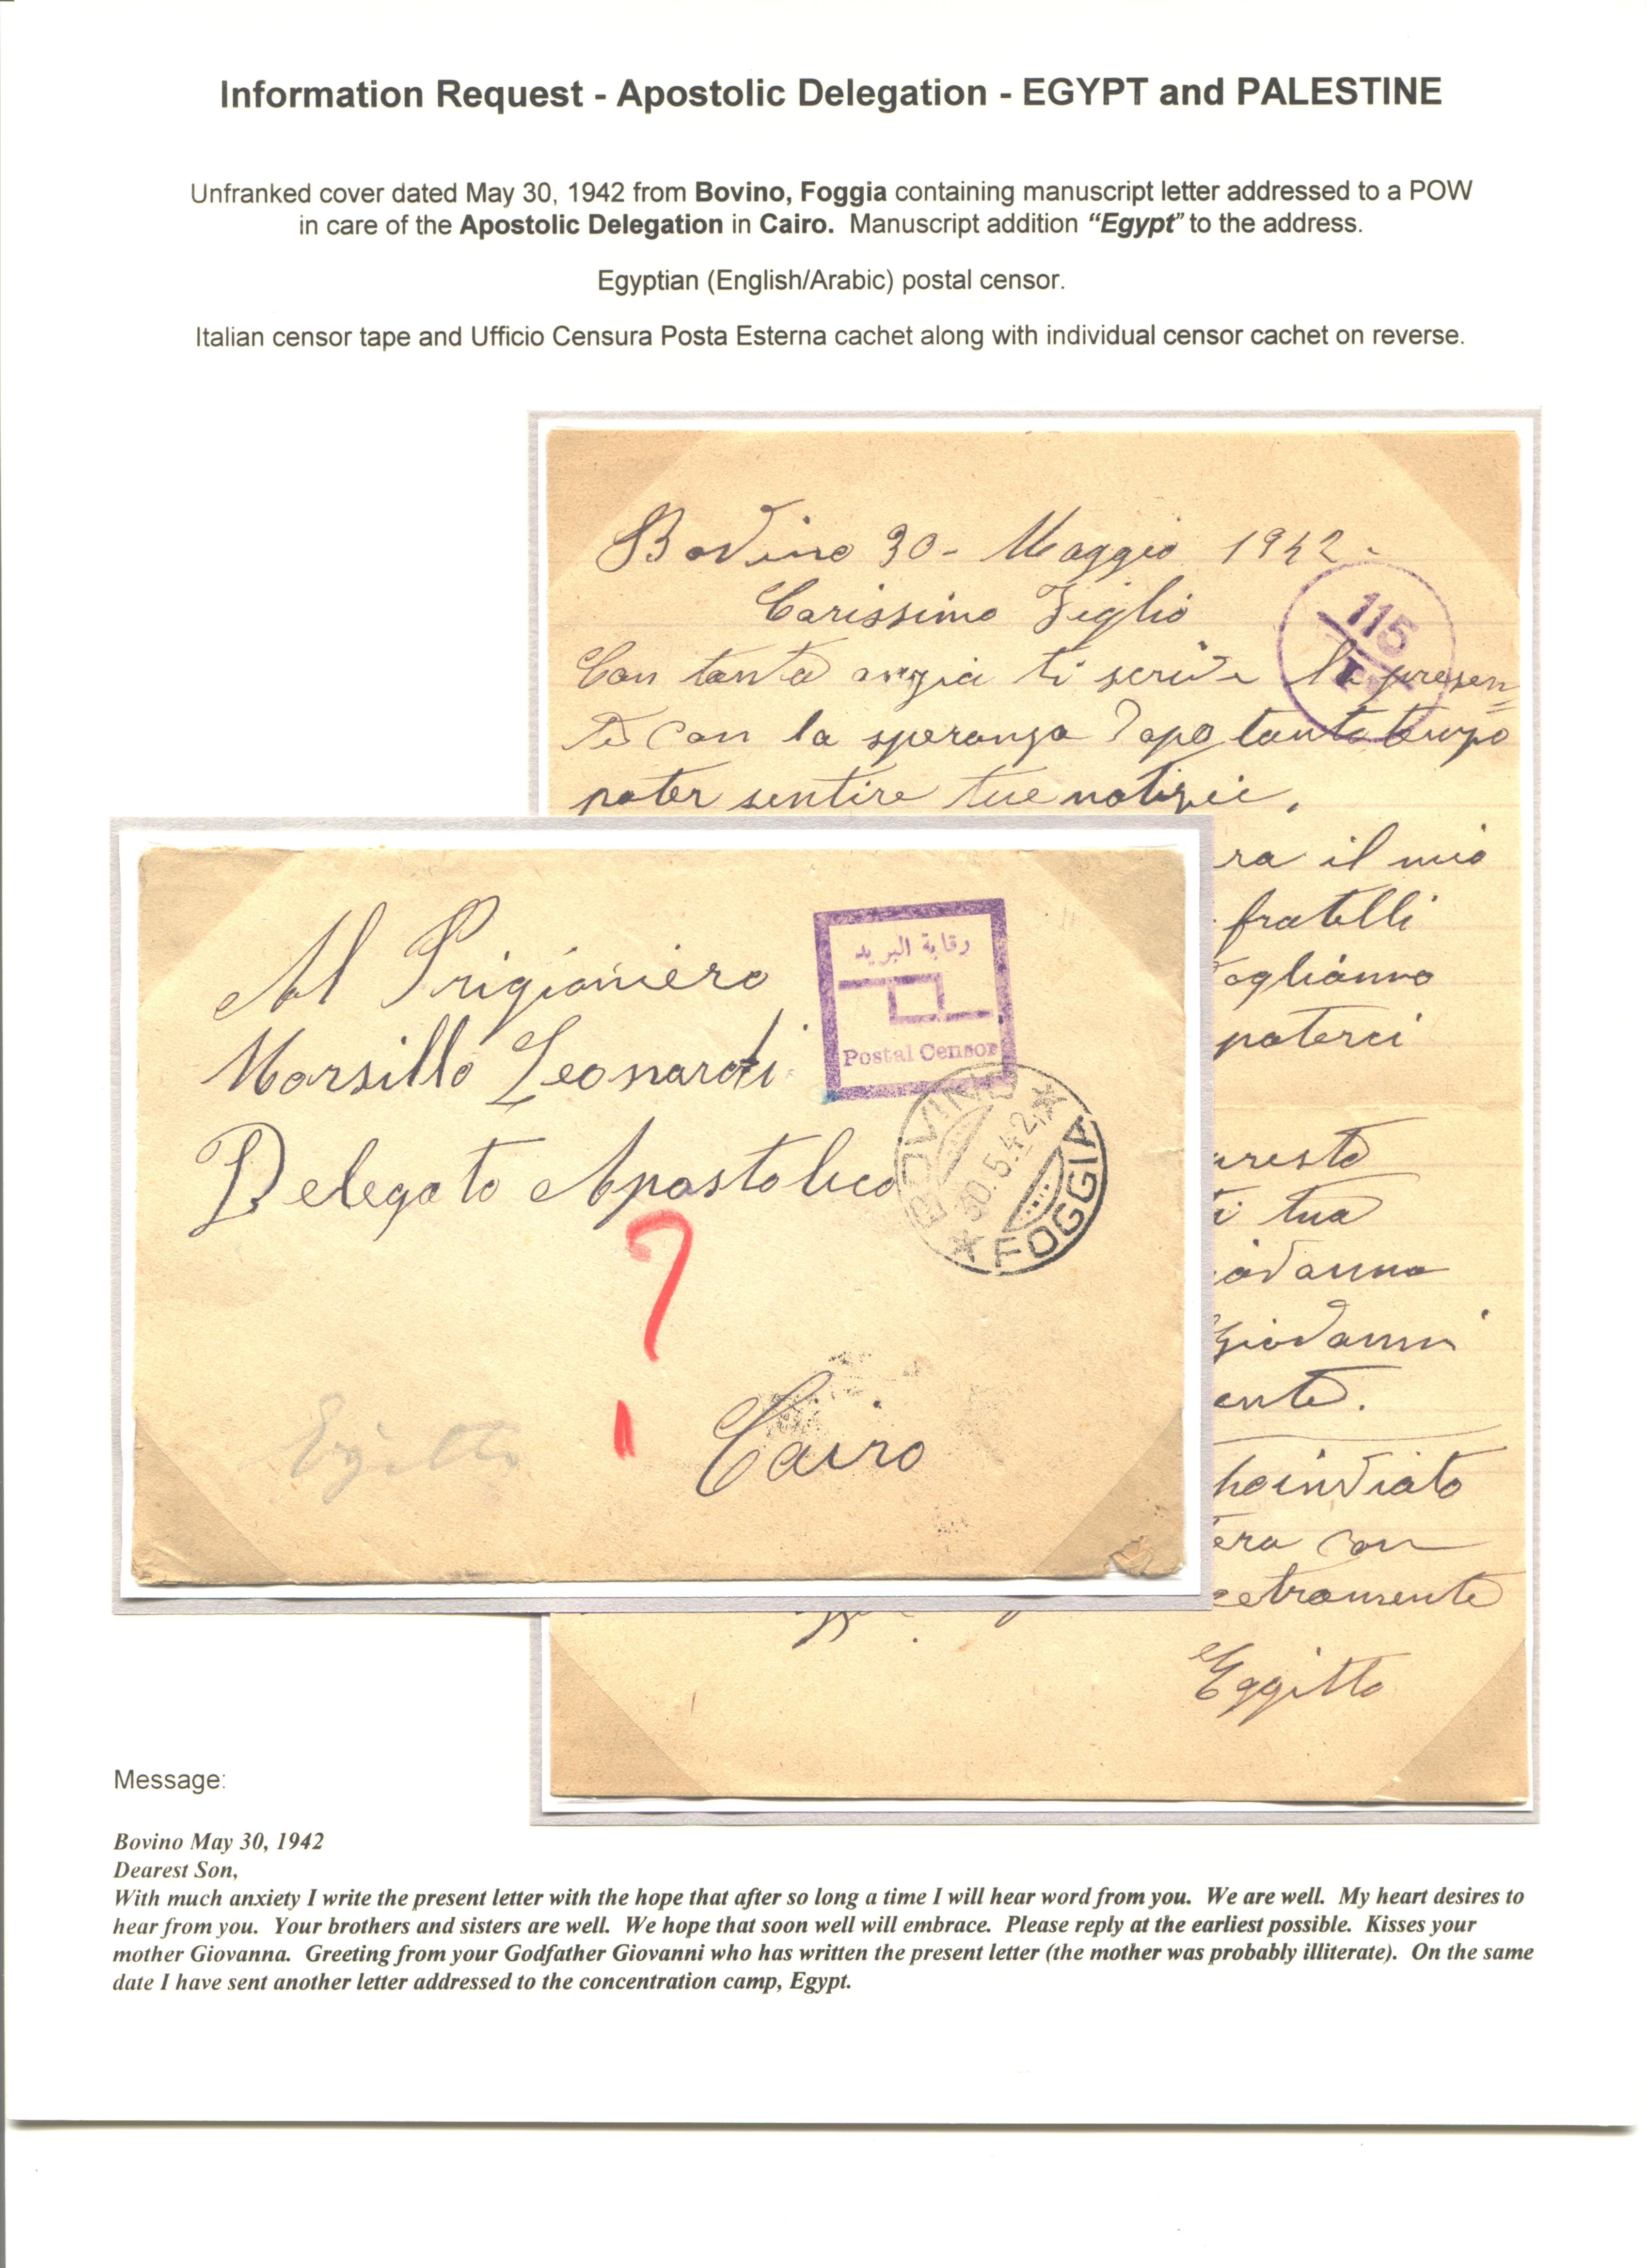 Information Request - Apostolic Delegation - EGYPT and PALESTINE
Unfranked cover dated May 30, 1942 from Bovino, Foggia containing manuscript letter addressed to a POW
in care of the Apostolic Delegation in Cairo. Manuscript addition “Egypt” to the address.
Egyptian (English/Arabic) postal censor.
Italian censor tape and Ufficio Censura Posta Esterna cachet along with individual censor cachet on reverse.
Bovino 30- Maggio 1942-
Carissimo Figlio
115
Con tanta anzia ti scrivo la presen=
te con la speranza dopo tanto tempo
poter sentire tue notizie.
ra il mio
fratelli
oglianno
poterci
presto
ti tua
iovanna
Giovanni
ente.
ho inviato
era con
etramente
Eggitto
Al Prigioniero
Marsillo Leonardi
Delegato Apostolico
?
Cairo
Egitto
رقابة البريد
Postal Censor
BOVINO
30.5.42
FOGGIA
Message:
Bovino May 30, 1942
Dearest Son,
With much anxiety I write the present letter with the hope that after so long a time I will hear word from you. We are well. My heart desires to
hear from you. Your brothers and sisters are well. We hope that soon well will embrace. Please reply at the earliest possible. Kisses your
mother Giovanna. Greeting from your Godfather Giovanni who has written the present letter (the mother was probably illiterate). On the same
date I have sent another letter addressed to the concentration camp, Egypt.